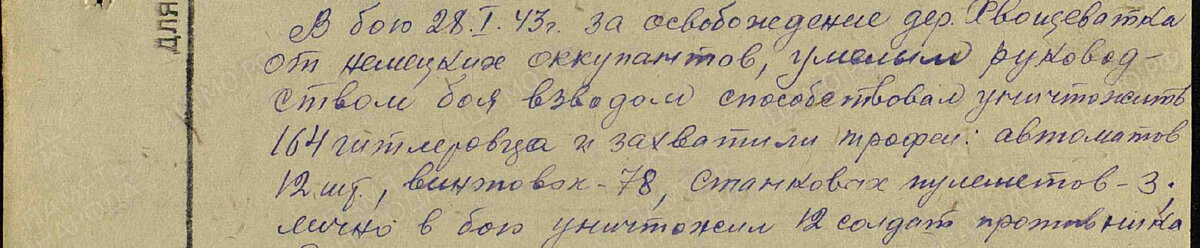 ДЛЯ
В бою 28.I.43г. за освобождение дер. Хвощеватка
от немецких оккупантов, умелым руковод-
ством боя взводом способствовал уничтожить
164 гитлеровца и захватили трофеи: автоматов
12 шт., винтовок-78, станковых пулеметов-3.
лично в бою уничтожил 12 солдат противника